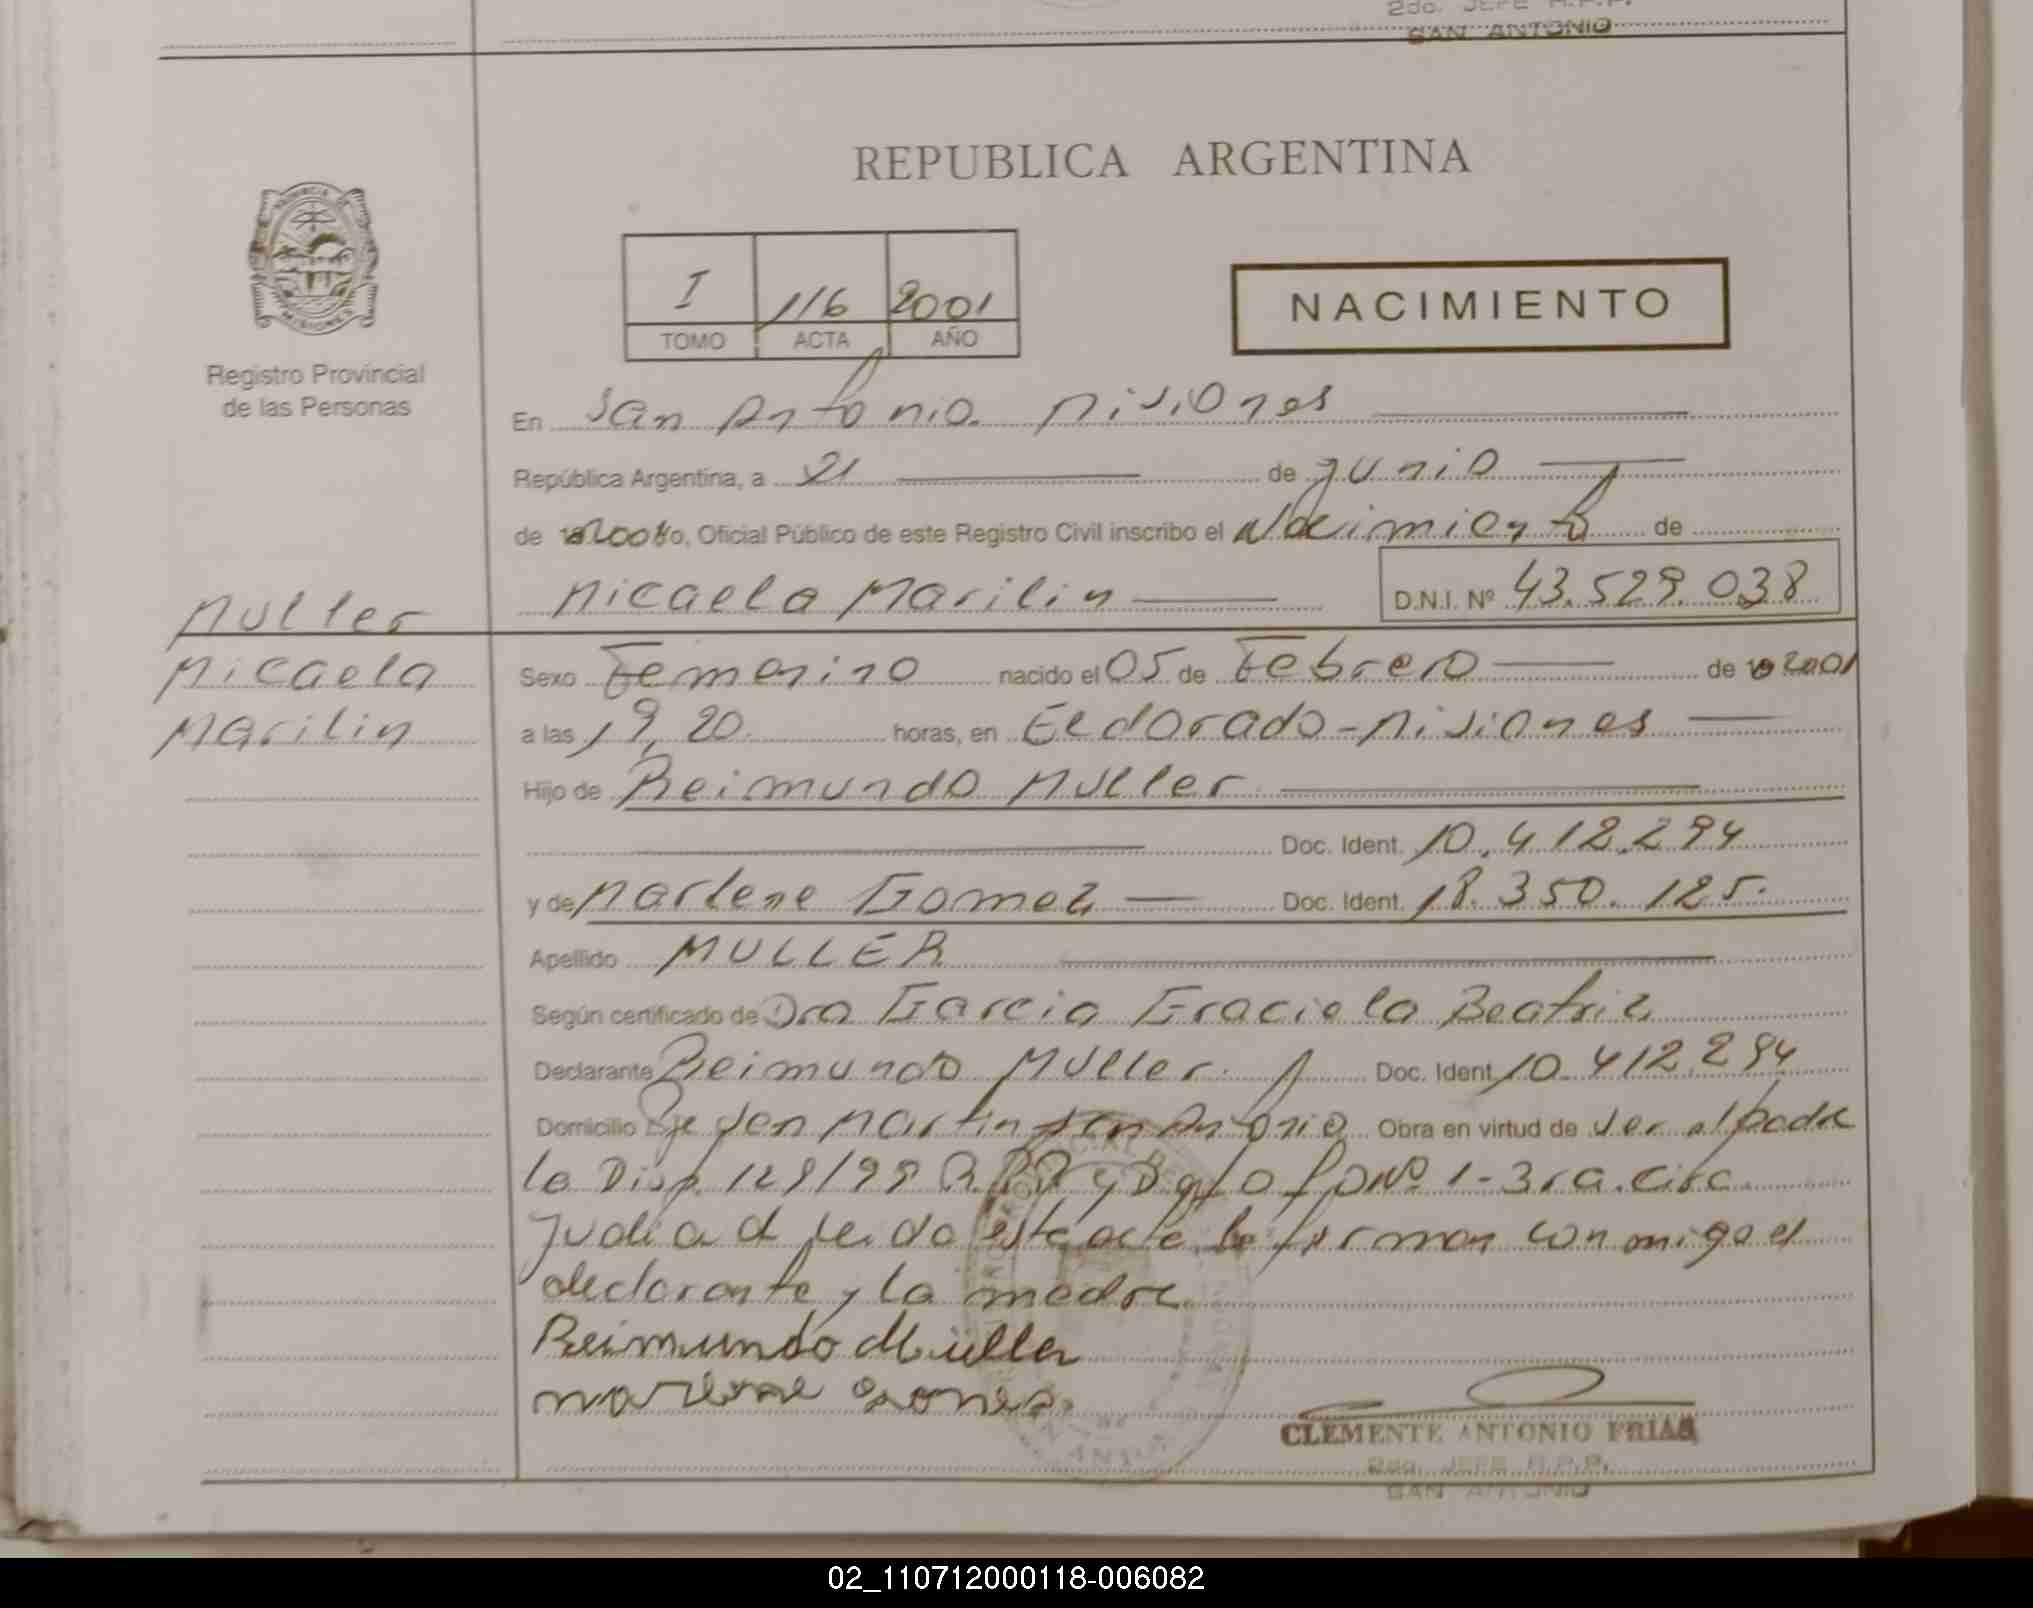 2do. JEFE R.P.P.
SAN ANTONIO
REPUBLICA ARGENTINA
PROVINCIA DE
MISIONES
Registro Provincial
de las Personas
I 116 2001
TOMO ACTA AÑO
NACIMIENTO
En San Antonio Misiones
República Argentina, a 21 de Junio
de 2001 yo, Oficial Público de este Registro Civil inscribo el Nacimiento de
Micaela Marilin D.N.I. Nº 43.529.038
Muller
Micaela
Marilin
Sexo Femenino nacido el 05 de Febrero de 2001
a las 19,20 horas, en Eldorado - Misiones
Hijo de Reimundo Muller
Doc. Ident. 10.412.294
y de Marlene Gomez Doc. Ident. 18.350.125.
Apellido MULLER
Según certificado de Dra Garcia Graciela Beatriz
Declarante Reimundo Muller. Doc. Ident. 10.412.294
Domicilio Pje Sen Martin San Antonio Obra en virtud de ser el padre
la Disp. 129/98 Nº 1-3ra. circ
Leido este acta la firman conmigo el
declarante y la madre
Reimundo Müller
marlene gomez.
CLEMENTE ANTONIO FRIAS
2do. JEFE R.P.P.
SAN ANTONIO
02_110712000118-006082